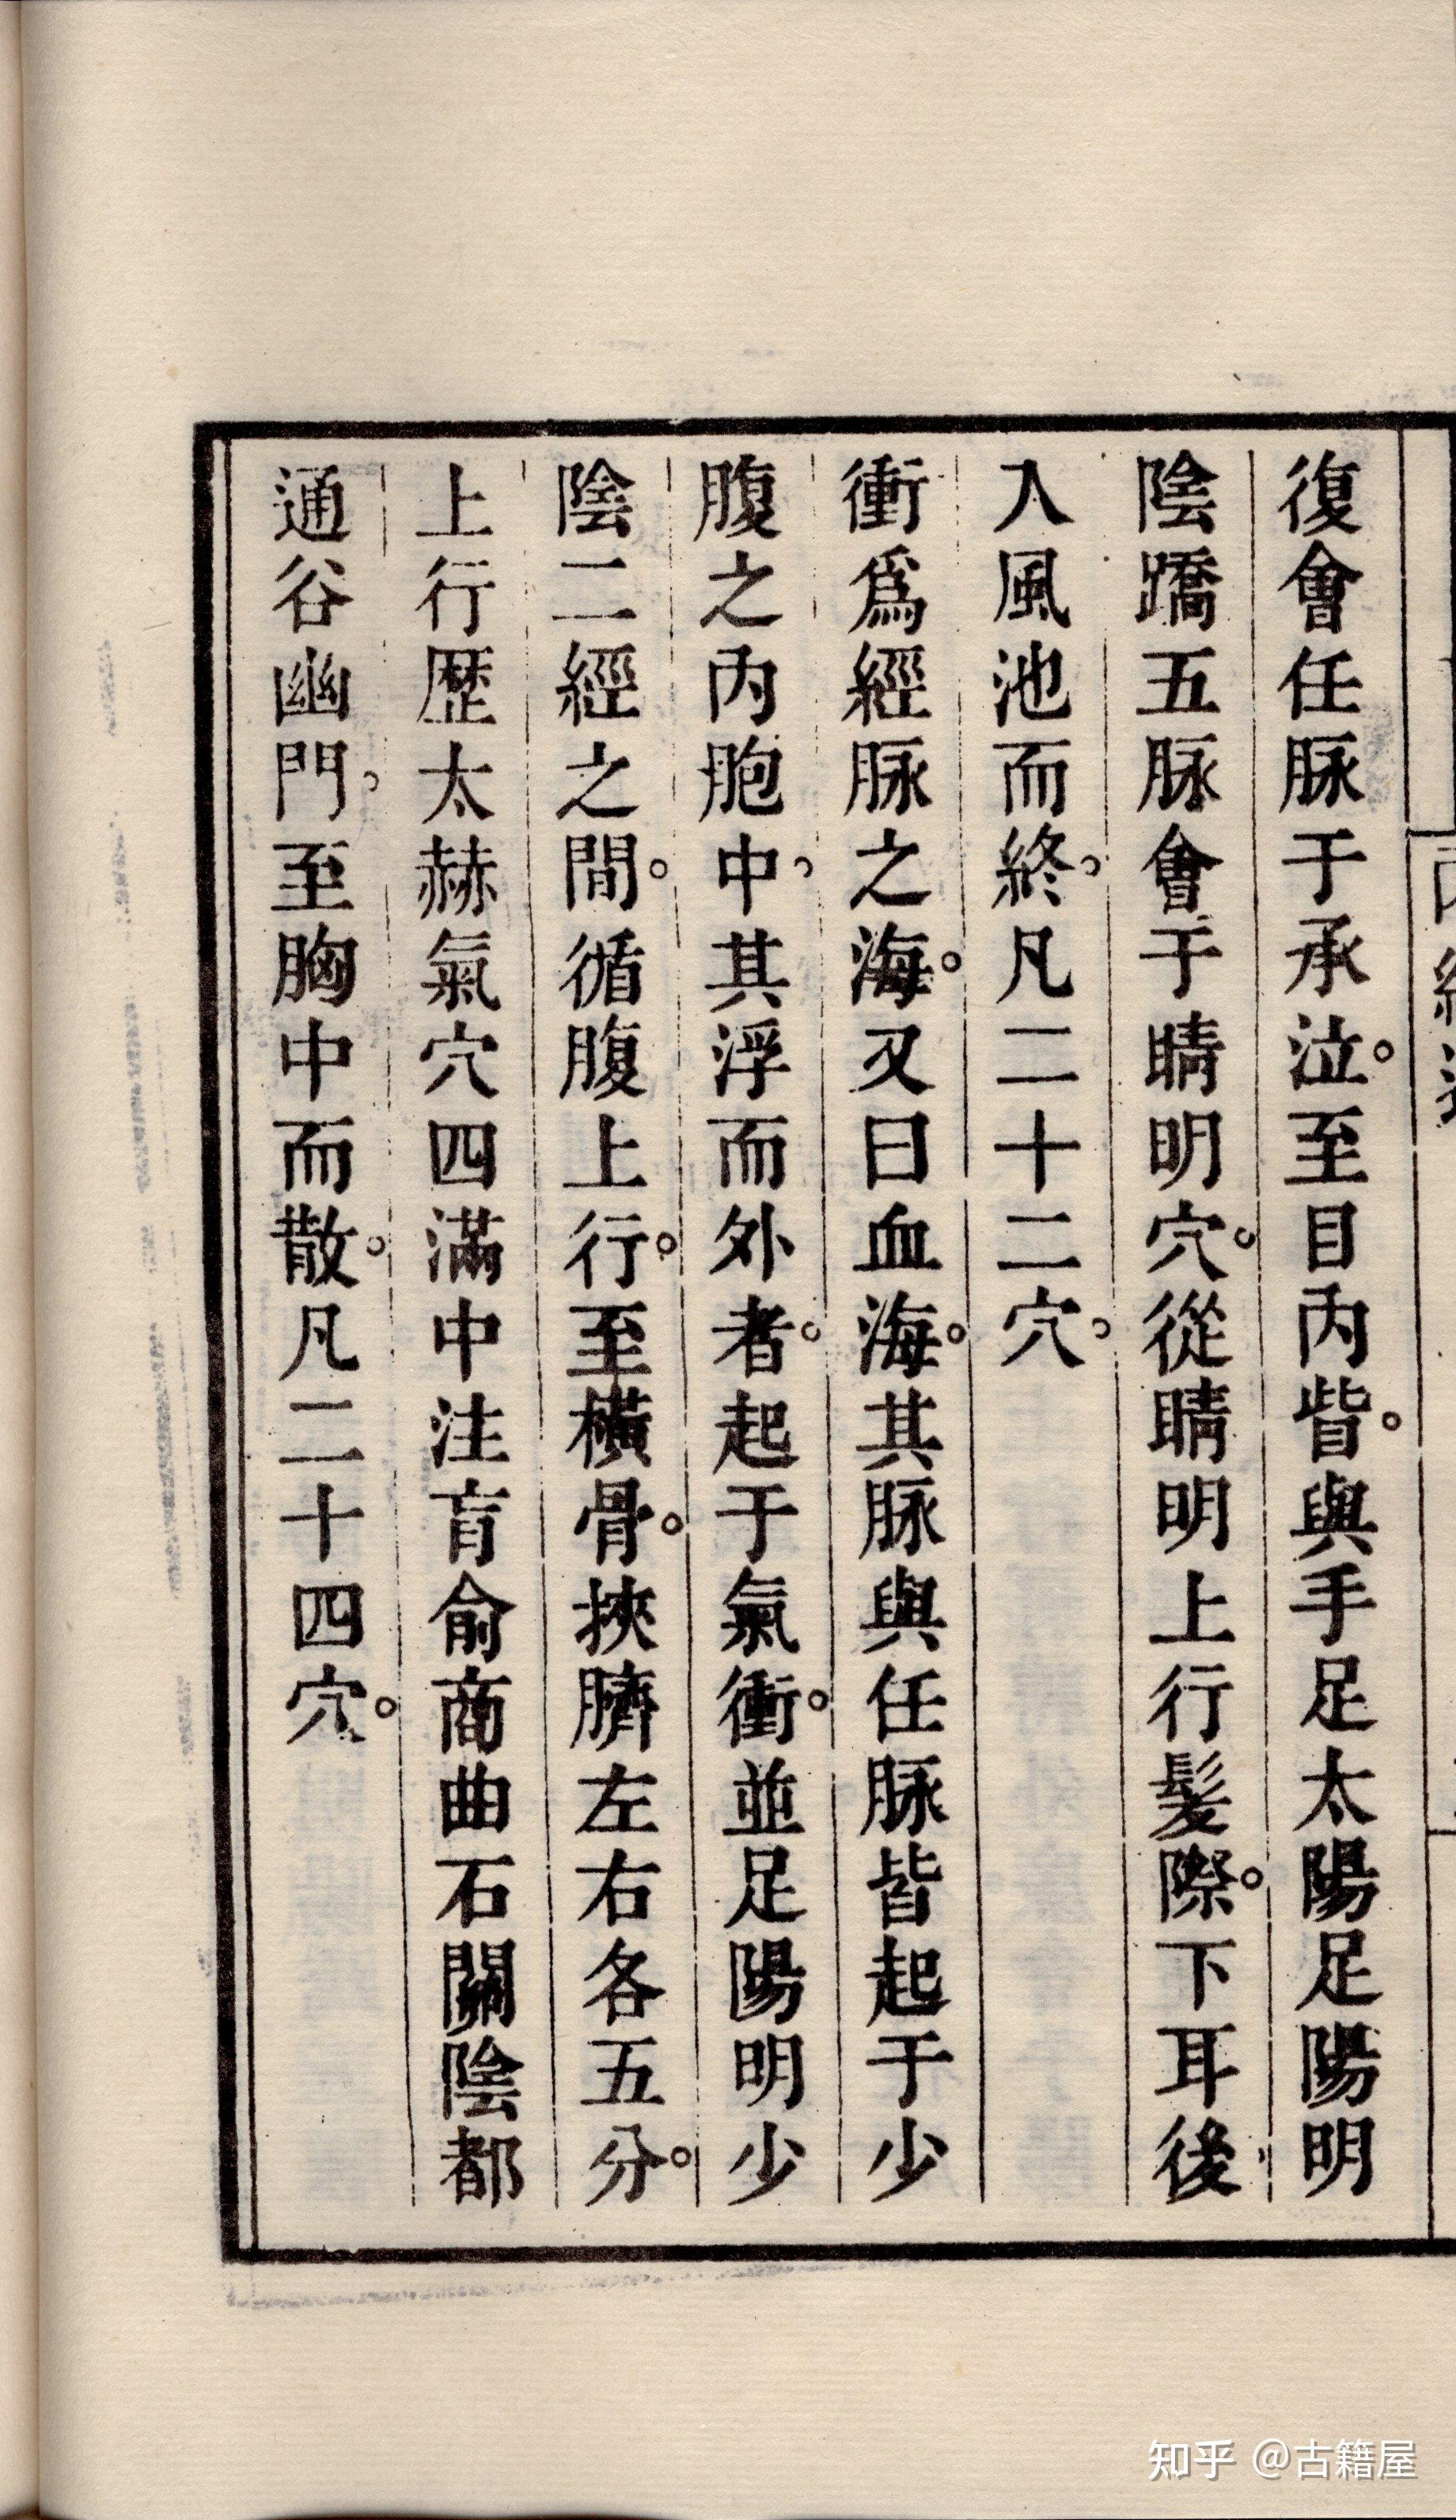 復會任脉于承泣。至目內眥。與手足太陽足陽明
陰蹻五脉會于睛明穴。從睛明上行髮際。下耳後
入風池而終。凡二十二穴。
衝爲經脉之海。又曰血海。其脉與任脉皆起于少
腹之內胞中。其浮而外者。起于氣衝。並足陽明少
陰二經之間。循腹上行。至橫骨。挾臍左右各五分。
上行歷太赫氣穴四滿中注肓俞商曲石關陰都
通谷幽門。至胸中而散。凡二十四穴。
知乎 @古籍屋